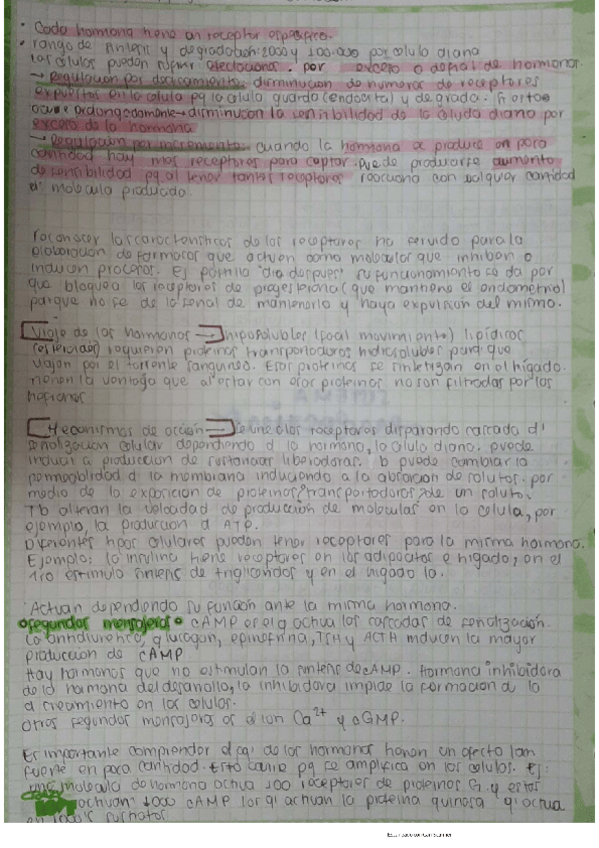 · Cada hormona tiene un receptor específico.
· rango de síntesis y degradación: 2000 y 100.000 por célula diana
Las células pueden sufrir afectaciones por exceso o déficit de hormona.
→ Regulación por decaimiento: disminución de números de receptores
expuestos en la célula pq la célula guarda (endocita) y degrada. Si esto
ocurre prolongadamente → disminución la sensibilidad de la célula diana por
exceso de la hormona
→ Regulación por incremento: cuando la hormona se produce en poca
cantidad hay más receptores para captar. Puede producirse aumento
de sensibilidad pq al tener tantos receptores reacciona con cualquier cantidad
d' molécula producida.
reconocer las características de los receptores ha servido para la
elaboración de fármacos que actúen como moléculas que inhiben o
inducen procesos. Ej: píldora "día después" su funcionamiento se da por
que bloquea los receptores de progesterona (que mantiene el endometrio)
para que no se de la señal de mantenerlo y haya expulsión del mismo.
Viaje de las hormonas → liposolubles (fácil movimiento) lipídicas
(esteroides) requieren proteínas transportadoras hidrosolubles para que
viajen por el torrente sanguíneo. Esas proteínas se sintetizan en el hígado.
tienen la ventaja que al estar con esas proteínas no son filtradas por los
nefrones
Mecanismos de acción → Se une a los receptores disparando cascada d'
señalización celular dependiendo d la hormona, la célula diana puede
inducir a producción de sustancias liberadoras. b puede cambiar la
permeabilidad d la membrana induciendo a la absorción de solutos por
medio de la exposición de proteínas transportadoras de un soluto.
Tb alteran la velocidad de producción de moléculas en la célula, por
ejemplo, la producción d ATP.
Diferentes tipos celulares pueden tener receptores para la misma hormona.
Ejemplo: la insulina tiene receptores en los adipocitos e hígado, en el
1ro estimula síntesis de triglicéridos y en el hígado lo.
· Actúan dependiendo su función ante la misma hormona.
segundos mensajeros AMP es el q activa las cascadas de señalización.
La antidiurética, glucagón, epinefrina, TSH y ACTH inducen la mayor
producción de cAMP
Hay hormonas que no estimulan la síntesis de cAMP. Hormona inhibidora
de la hormona del desarrollo, la inhibidora impide la formación d la
d creamiento en las células.
Otros segundos mensajeros es el ion Ca²⁺ y cGMP.
Es importante comprender el pq' de las hormonas tienen un efecto tan
fuerte en poca cantidad. Esto ocurre pq se amplifica en las células. Ej:
una molécula de hormona activa 100 receptores de proteínas G y estos
activan 1000 cAMP los q' activan la proteína quinasa q' activa
sustratos